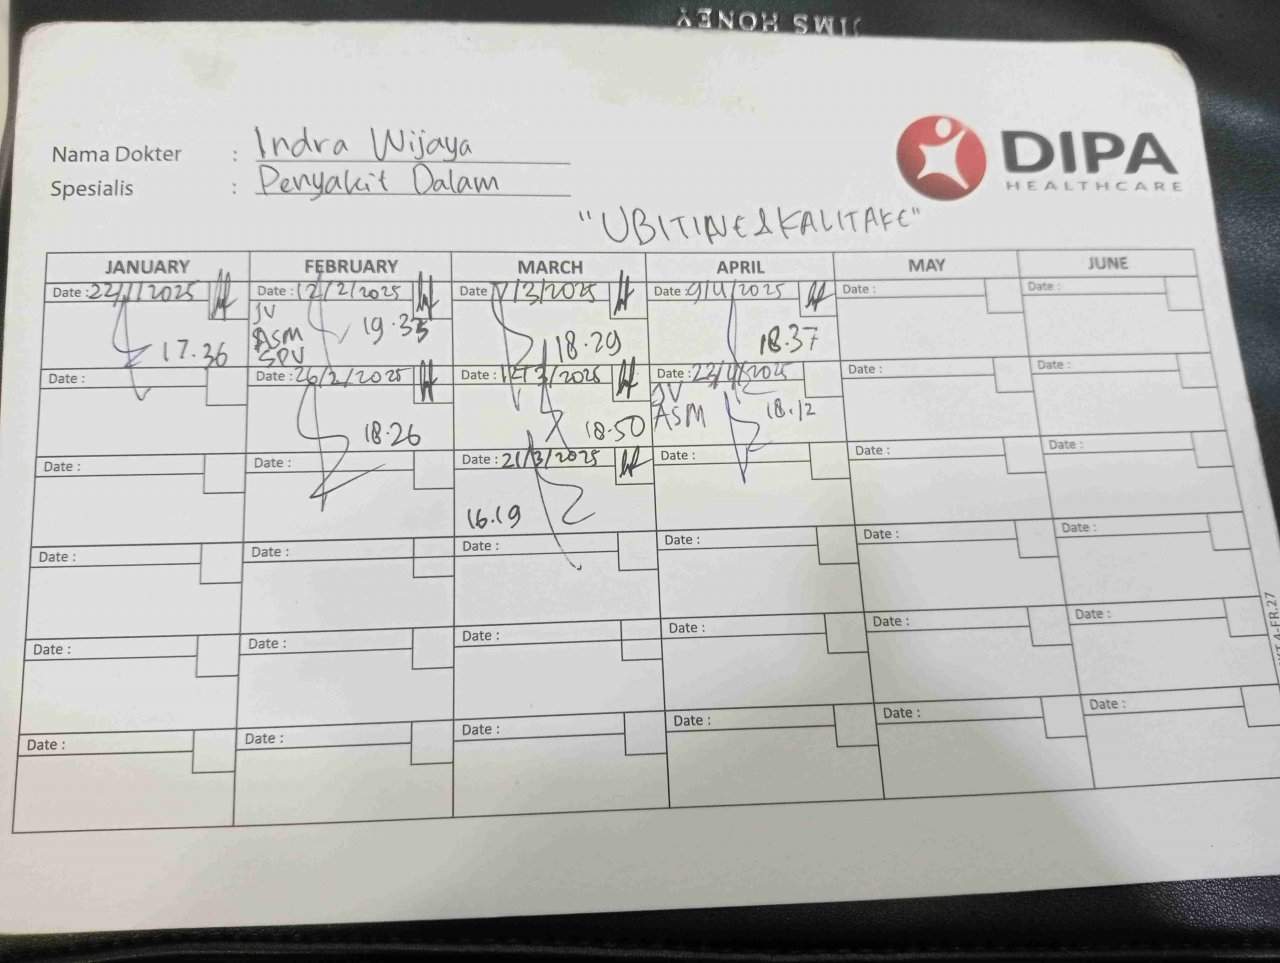 JIMS HONEY
Nama Dokter : Indra Wijaya
Spesialis : Penyakit Dalam
DIPA
HEALTHCARE
"UBITINE & KALITAKE"
JANUARY FEBRUARY MARCH APRIL MAY JUNE
Date : 22/1/2025 Date : 12/2/2025 Date 7/3/2025 Date : 9/4/2025 Date : Date :
JV
ASM
SPV
17.36 19.33 18.29 18.37
Date : Date : 26/2/2025 Date : 12/3/2025 Date : 22/4/2025 Date : Date :
JV
ASM
18.26 18.50 18.12
Date : Date : Date : 21/3/2025 Date : Date : Date :
16.19
Date : Date : Date : Date : Date : Date :
Date : Date : Date : Date : Date : Date :
Date : Date : Date : Date : Date : Date :